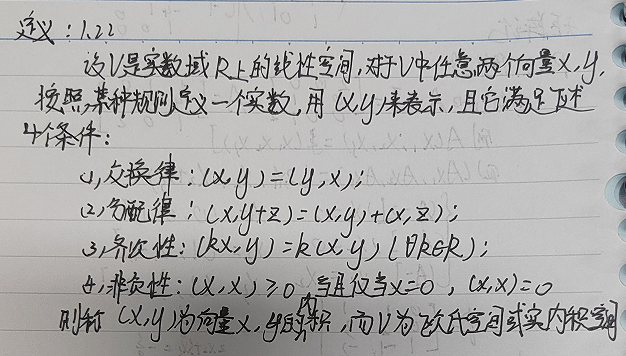 定义:1.22
设V是实数域R上的线性空间,对于V中任意两个向量x,y,
按照某种规则定义一个实数,用(x,y)来表示,且它满足下述
4个条件:
(1),交换律:(x,y)=(y,x);
(2),分配律:(x,y+z)=(x,y)+(x,z);
(3),齐次性:(kx,y)=k(x,y)(∀k∈R);
(4),非负性:(x,x)≥0,当且仅当x=0,(x,x)=0
则称(x,y)为向量x,y的内积,而V为欧氏空间或实内积空间